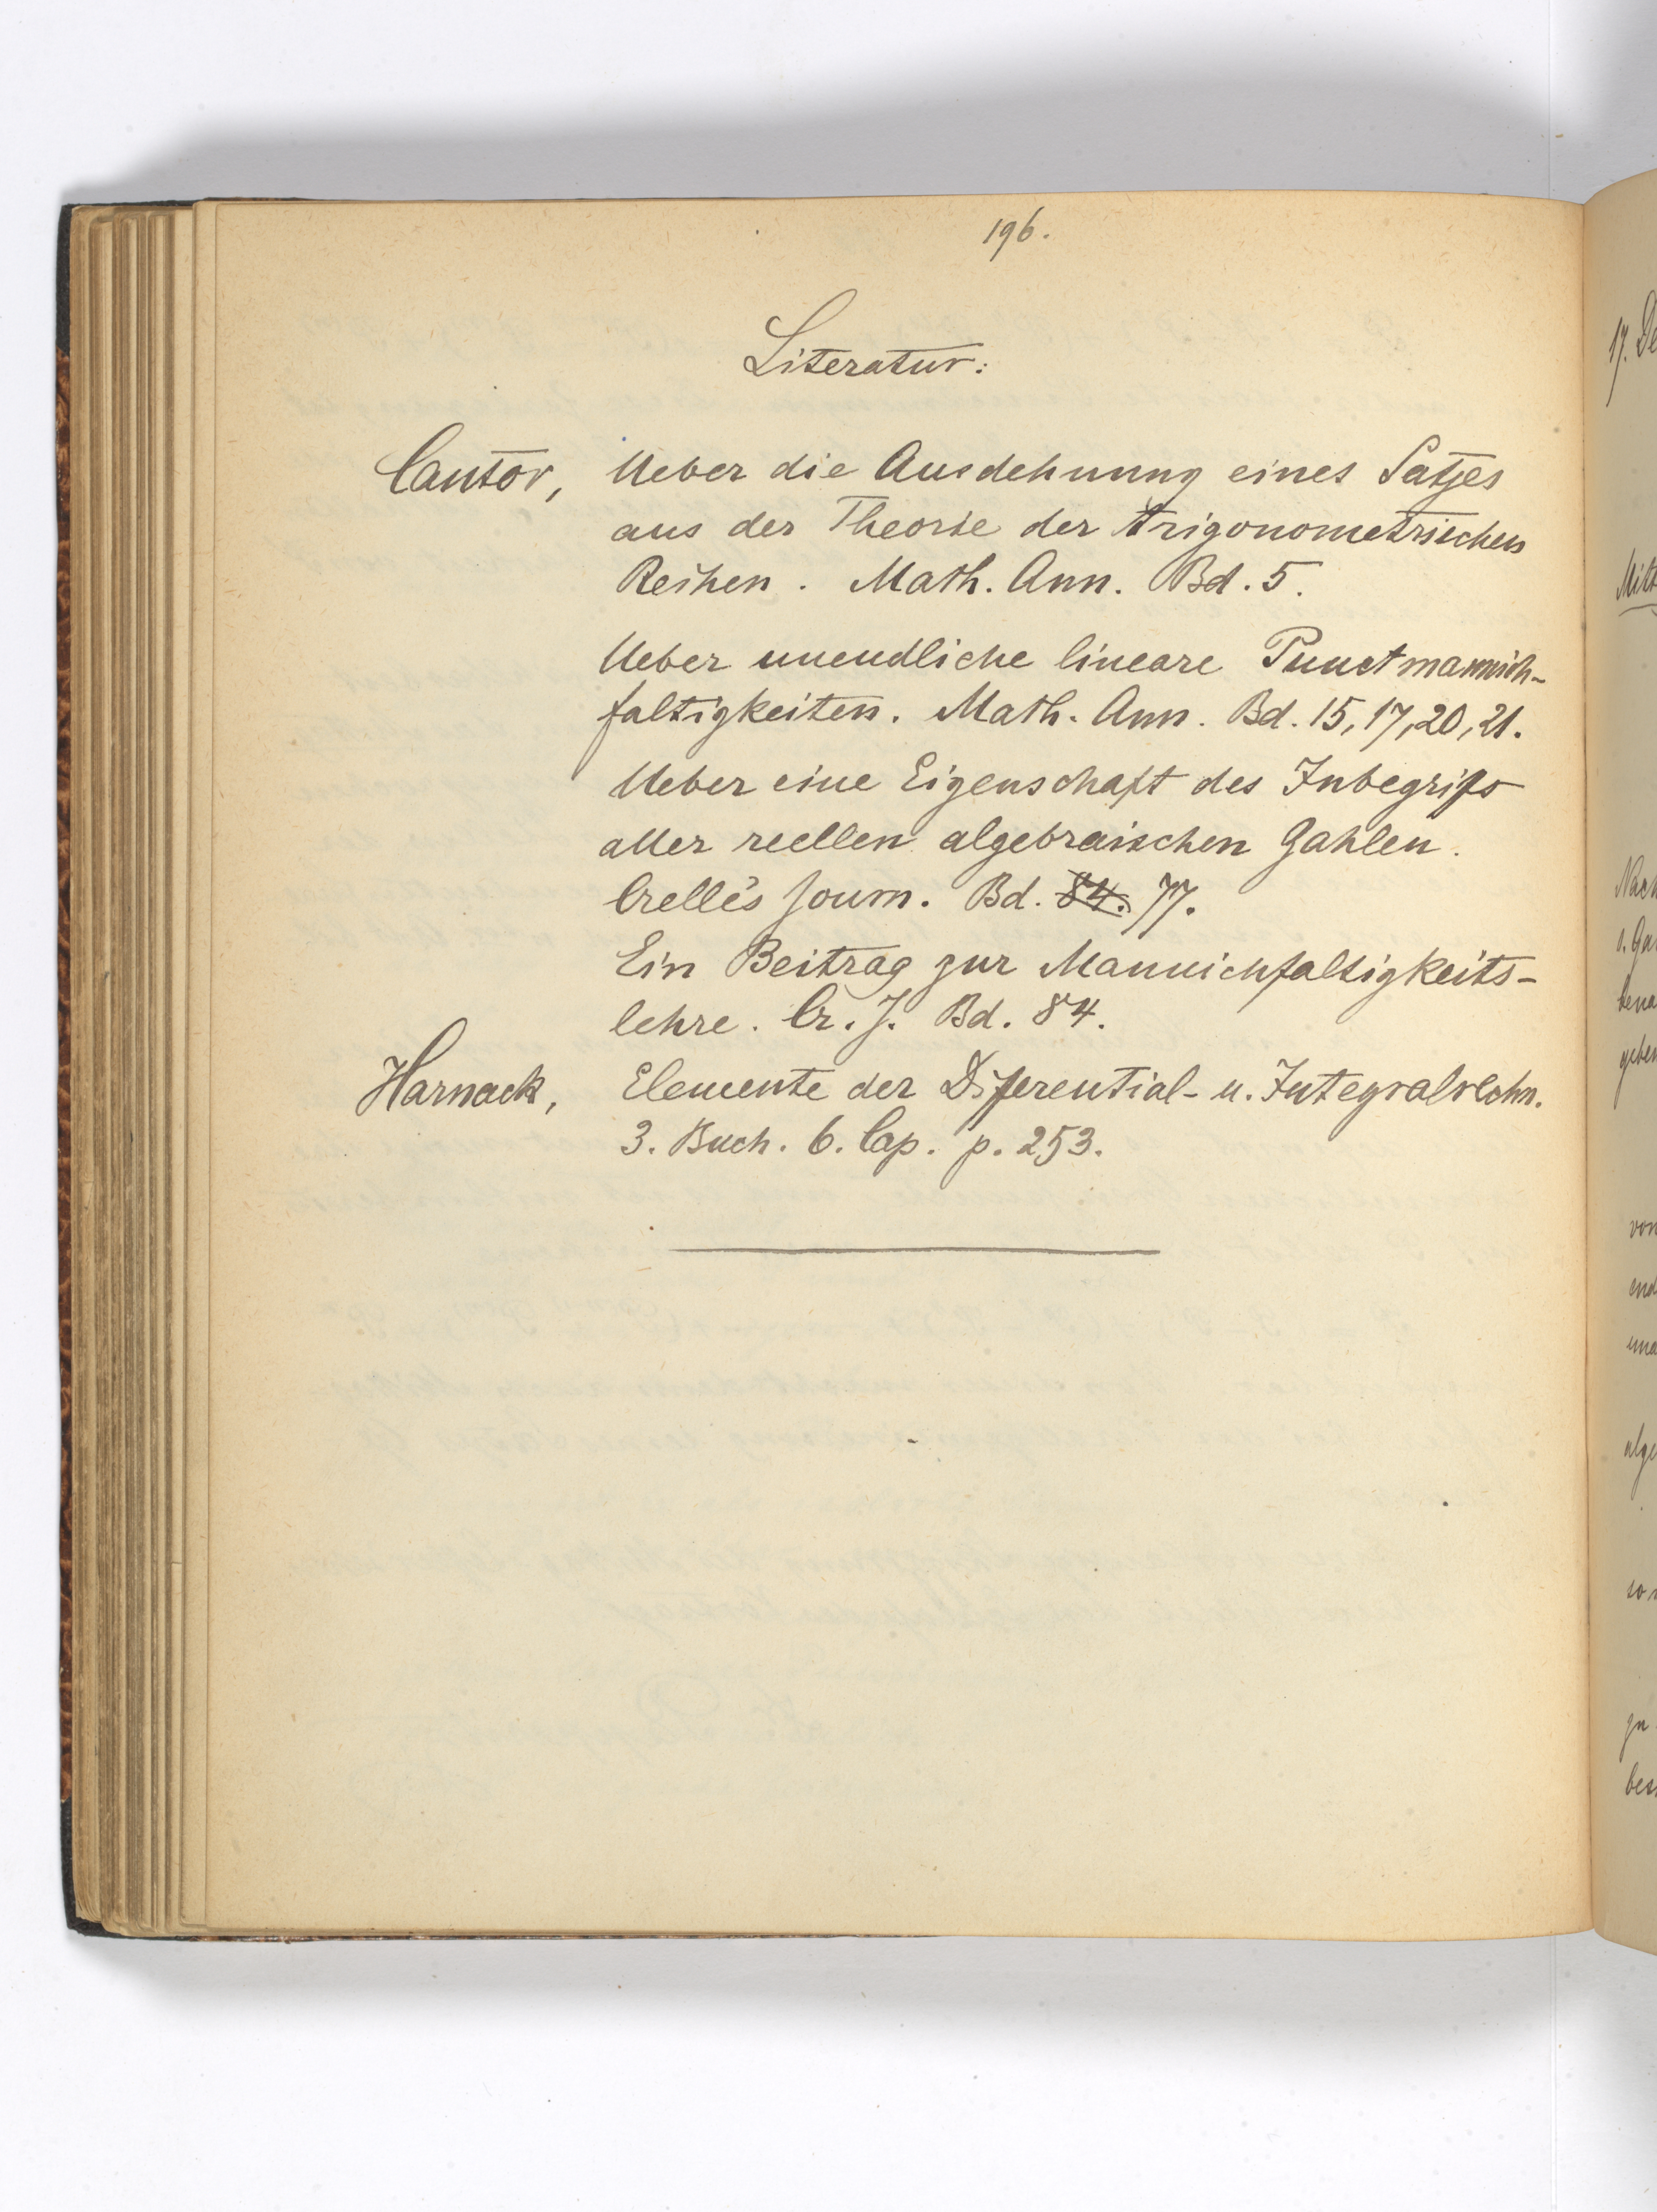 196.
Literatur:
Cantor, Ueber die Ausdehnung eines Satzes
aus der Theorie der trigonometrischen
Reihen. Math. Ann. Bd. 5.
Ueber unendliche lineare Punctmannich-
faltigkeiten. Math. Ann. Bd. 15, 17, 20, 21.
Ueber eine Eigenschaft des Inbegriffs
aller reellen algebraischen Zahlen.
Crelle's Journ. Bd. 84. 77.
Ein Beitrag zur Mannichfaltigkeits-
lehre. Cr. J. Bd. 84.
Harnack, Elemente der Differential- u. Integralrechn.
3. Buch. 6. Cap. p. 253.
17. De
Mitt
Nach